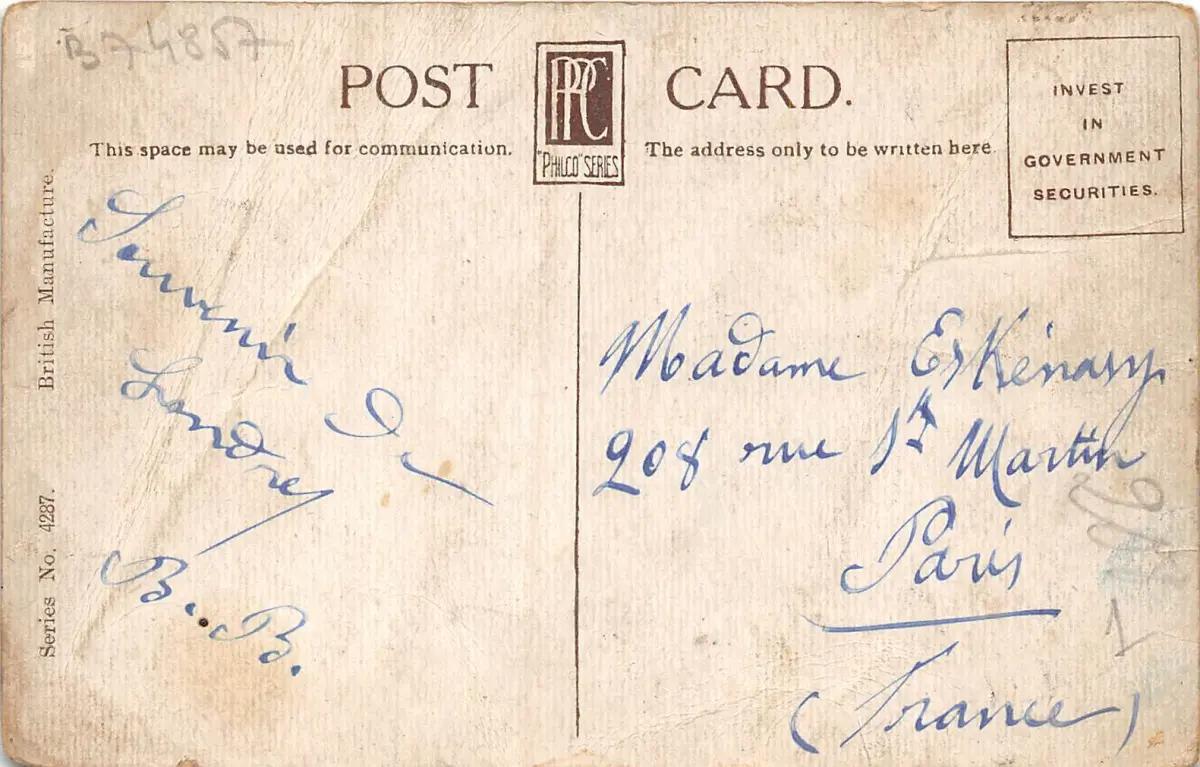 B74857
POST CARD.
PPC
"PHILCO" SERIES
This space may be used for communication.
The address only to be written here
INVEST
IN
GOVERNMENT
SECURITIES.
British Manufacture.
Series No. 4287.
Souvenir De
Londres
B. B.
Madame Eskénasy
208 rue St Martin
Paris
(France)
1